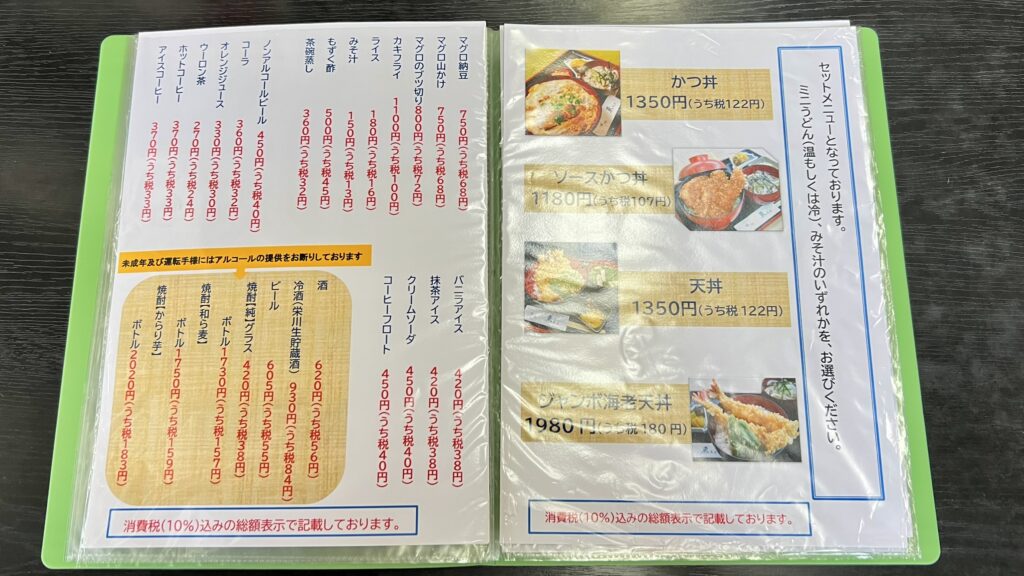 セットメニューとなっております。
ミニうどん(温もしくは冷)、みそ汁のいずれかを、お選びください。
かつ丼
1350円(うち税122円)
ソースかつ丼
1180円(うち税107円)
天丼
1350円(うち税122円)
ジャンボ海老天丼
1980円(うち税180円)
消費税(10%)込みの総額表示で記載しております。
マグロ納豆 750円(うち税68円)
マグロ山かけ 750円(うち税68円)
マグロのブツ切り 800円(うち税72円)
カキフライ 1100円(うち税100円)
ライス 180円(うち税16円)
みそ汁 150円(うち税13円)
もずく酢 500円(うち税45円)
茶碗蒸し 360円(うち税32円)
ノンアルコールビール 450円(うち税40円)
コーラ 360円(うち税32円)
オレンジジュース 330円(うち税30円)
ウーロン茶 270円(うち税24円)
ホットコーヒー 370円(うち税33円)
アイスコーヒー 370円(うち税33円)
バニラアイス 420円(うち税38円)
抹茶アイス 420円(うち税38円)
クリームソーダ 450円(うち税40円)
コーヒーフロート 450円(うち税40円)
未成年及び運転手様にはアルコールの提供をお断りしております
酒 620円(うち税56円)
冷酒(栄川生貯蔵酒) 930円(うち税84円)
ビール 605円(うち税55円)
焼酎【純】グラス 420円(うち税38円)
ボトル 1730円(うち税157円)
焼酎【和ら麦】
ボトル 1750円(うち税159円)
焼酎【からり芋】
ボトル 2020円(うち税183円)
消費税(10%)込みの総額表示で記載しております。